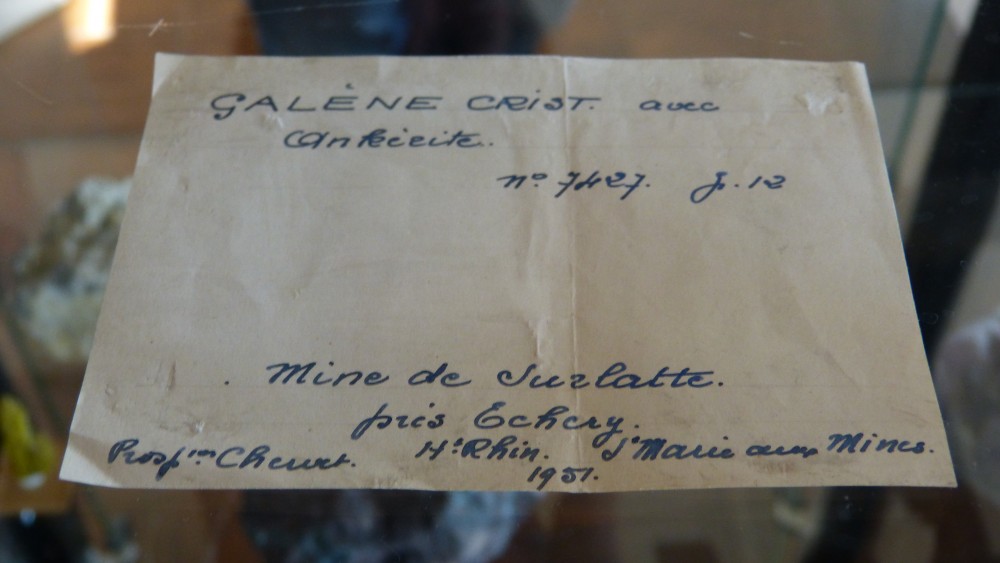 GALÈNE CRIST. avec
Ankérite.
n° 7427. J. 12
Mine de Surlatte.
près Echery.
Prosp.on H.t Rhin. Ste Marie aux Mines.
1951.